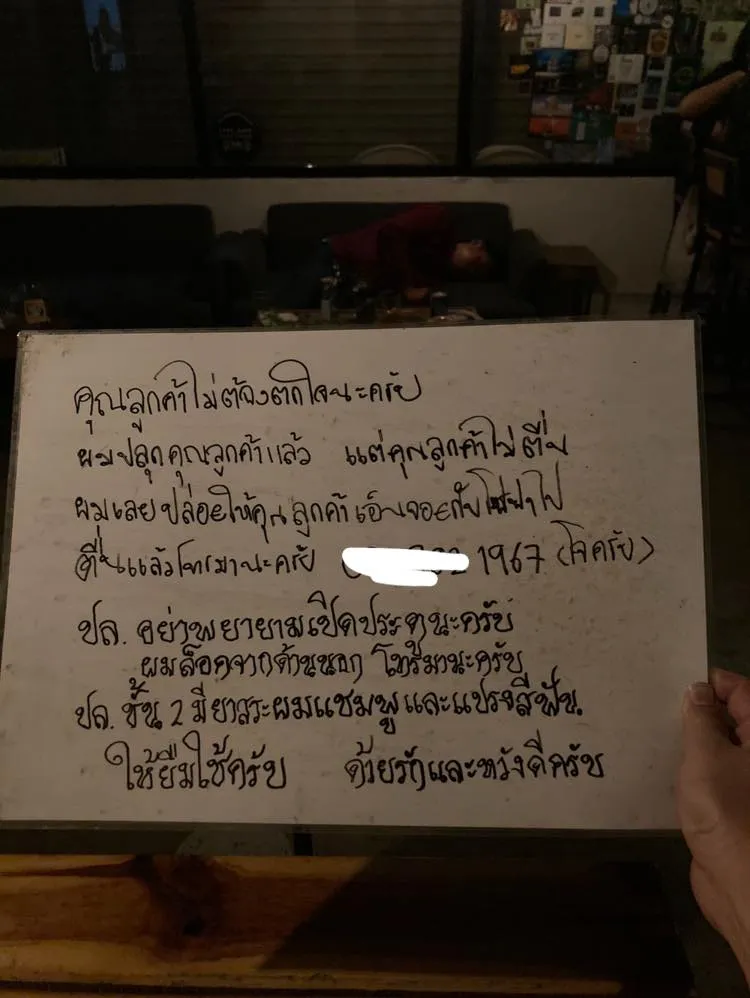 คุณลูกค้าไม่ต้องตกใจนะครับ
ผมปลุกคุณลูกค้าแล้ว แต่คุณลูกค้าไม่ตื่น
ผมเลยปล่อยให้คุณลูกค้าเอ็นจอยกับโซฟาไป
ตื่นแล้วโทรมานะครับ 1967 (โจครับ)
ปล. อย่าพยายามเปิดประตูนะครับ
ผมล็อคจากด้านนอก โทรมานะครับ
ปล. ชั้น 2 มียาสระผมแชมพูและแปรงสีฟัน.
ให้ยืมใช้ครับ ด้วยรักและหวังดีครับ